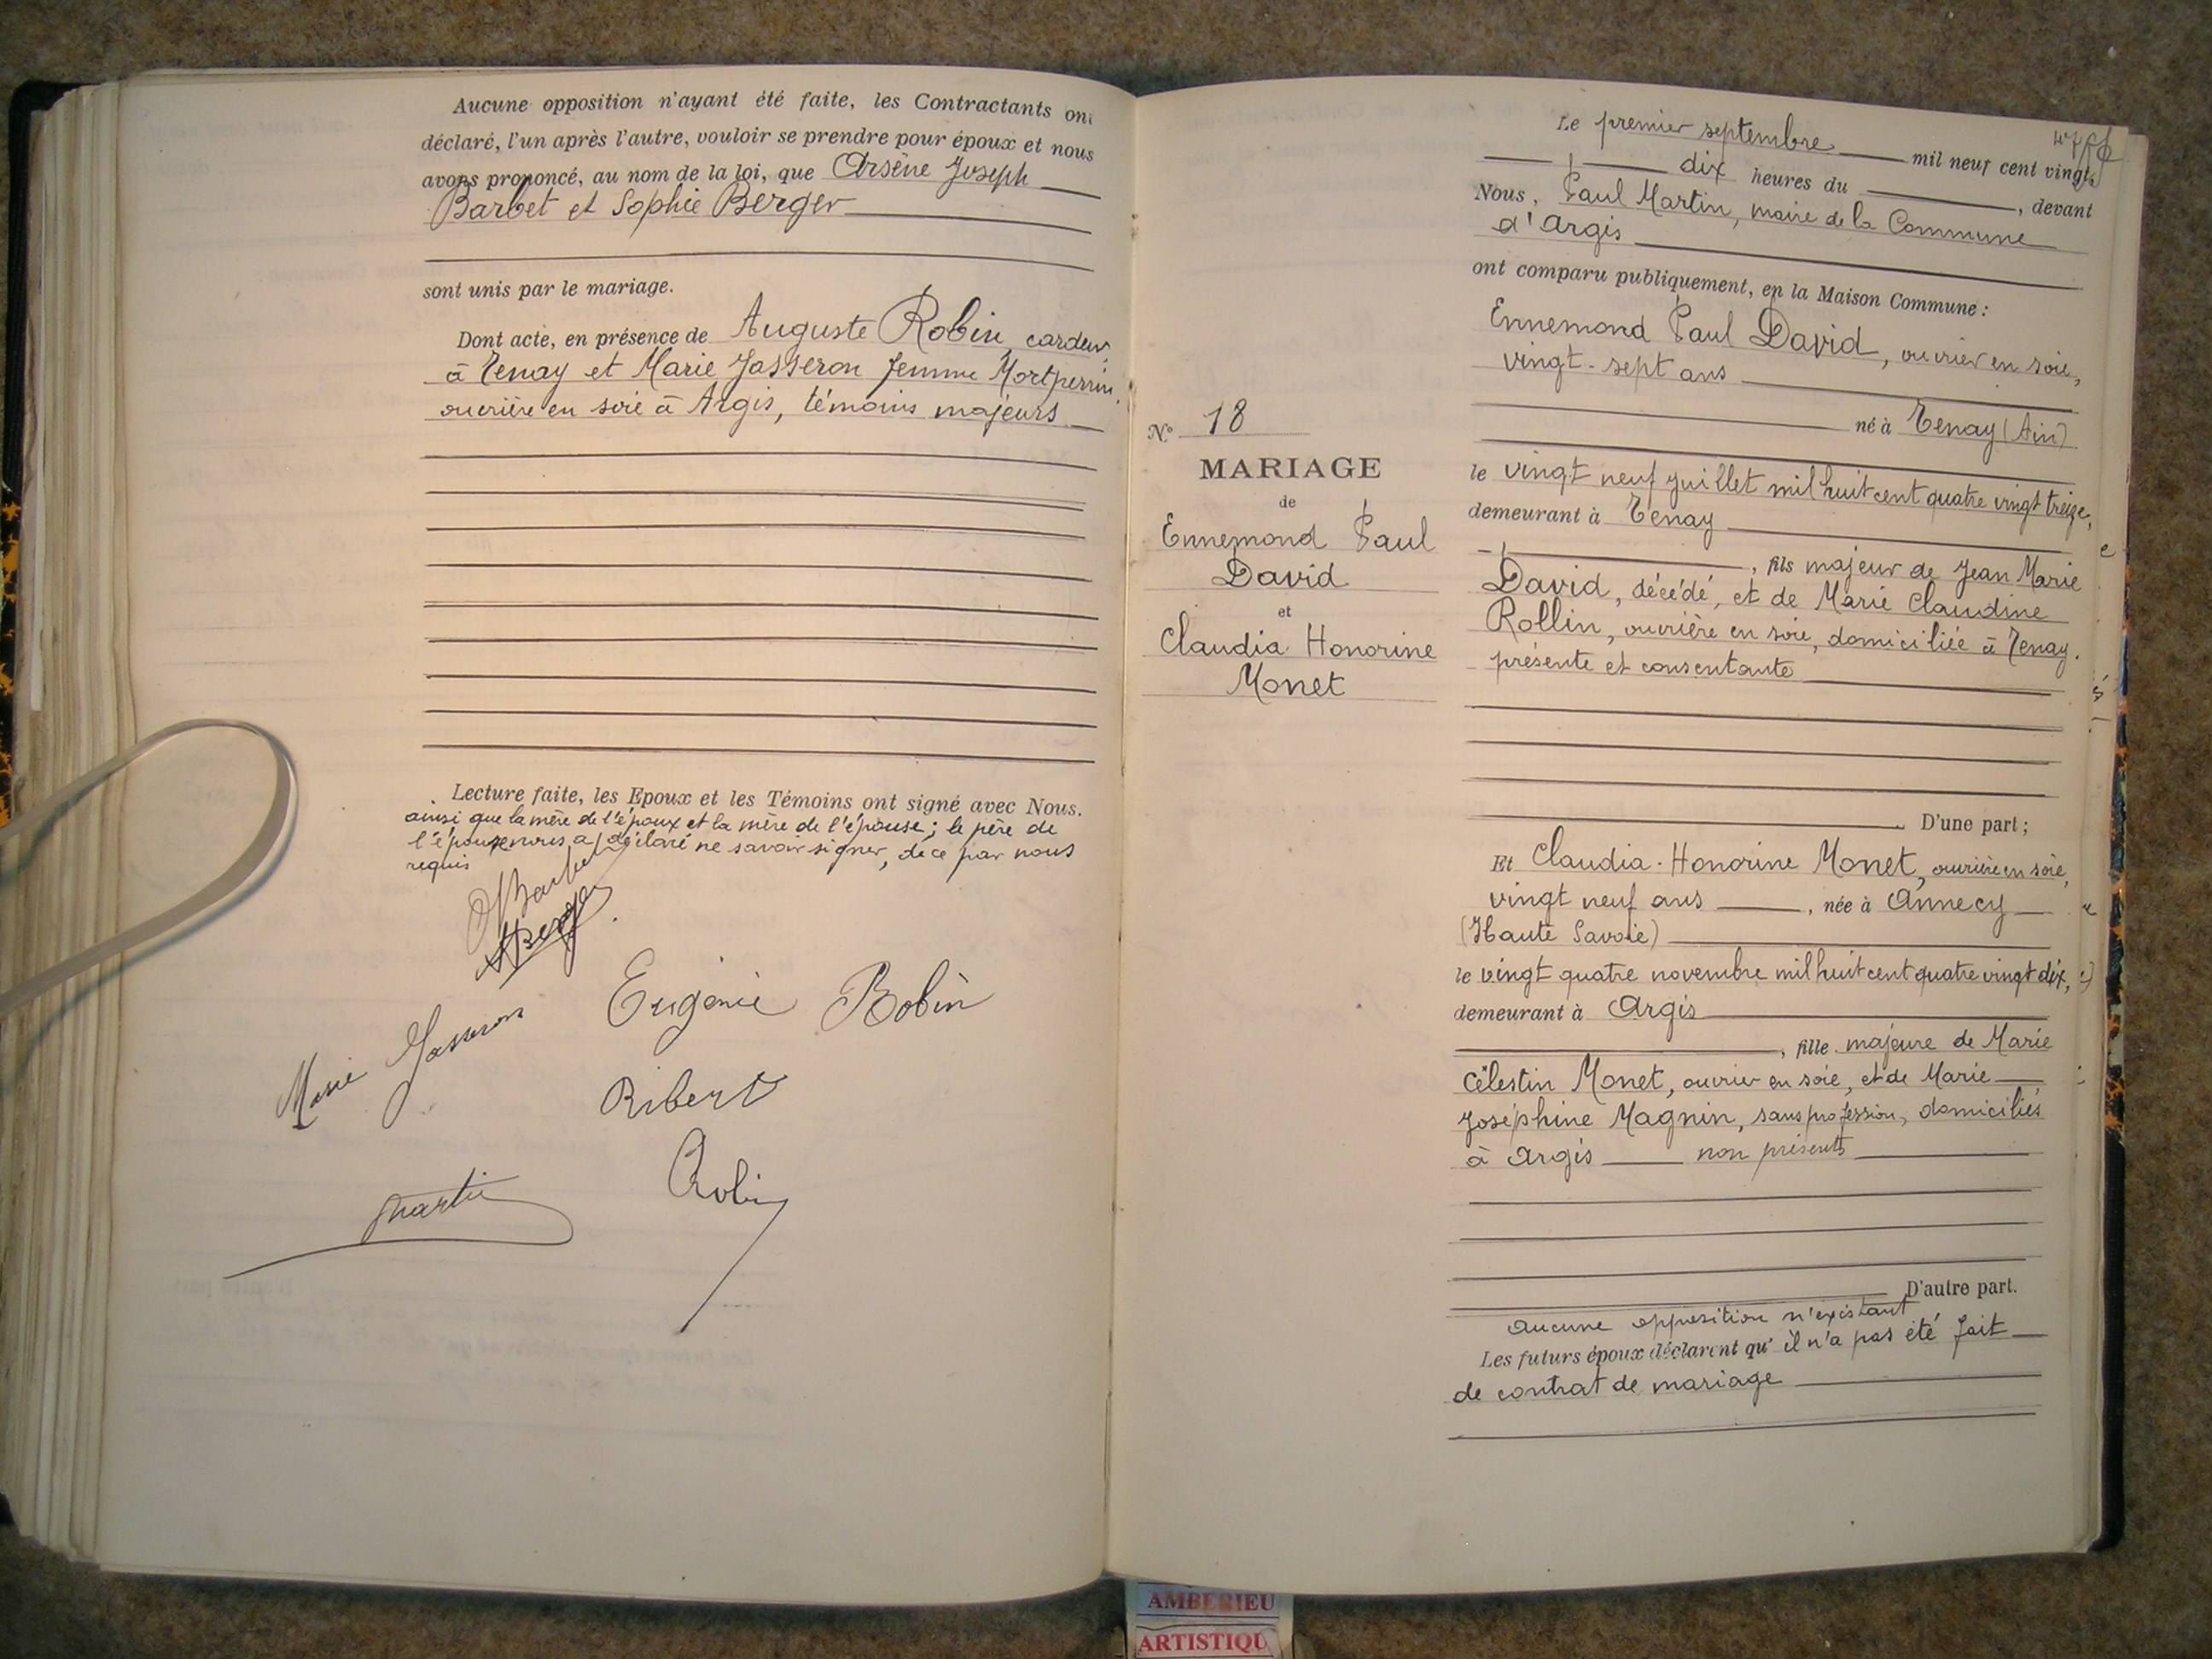 Aucune opposition n'ayant été faite, les Contractants ont
déclaré, l'un après l'autre, vouloir se prendre pour époux et nous
avons prononcé, au nom de la loi, que Arsène Joseph
Barbet et Sophie Berger
sont unis par le mariage.
Dont acte, en présence de Auguste Robin, cardeur,
à Tenay et Marie Jasseron femme Mortperrin,
ouvrière en soie à Argis, témoins majeurs
Lecture faite, les Epoux et les Témoins ont signé avec Nous.
ainsi que la mère de l'époux et la mère de l'épouse; le père de
l'épouse nous a déclaré ne savoir signer, de ce par nous
requis
Barbet
Berger
Eugénie Bobin
Marie Jasseron
Ribert
Robin
Martin
Le premier septembre mil neuf cent vingt,
dix heures du , devant
Nous, Paul Martin, maire de la Commune
d'Argis
ont comparu publiquement, en la Maison Commune :
Ennemond Paul David, ouvrier en soie,
vingt-sept ans
né à Tenay (Ain)
le vingt neuf juillet mil huit cent quatre vingt treize,
demeurant à Tenay
, fils majeur de Jean Marie
David, décédé, et de Marie Claudine
Rollin, ouvrière en soie, domiciliée à Tenay.
présente et consentante
D'une part ;
N° 18
MARIAGE
de
Ennemond Paul
David
et
Claudia Honorine
Monet
Et Claudia-Honorine Monet, ouvrière en soie,
vingt neuf ans , née à Annecy
(Haute Savoie)
le vingt quatre novembre mil huit cent quatre vingt dix,
demeurant à Argis
, fille majeure de Marie
Célestin Monet, ouvrier en soie, et de Marie
Joséphine Magnin, sans profession, domiciliés
à Argis non présents
D'autre part.
Aucune opposition n'existant
Les futurs époux déclarent qu'il n'a pas été fait
de contrat de mariage
AMBERIEU
ARTISTIQU